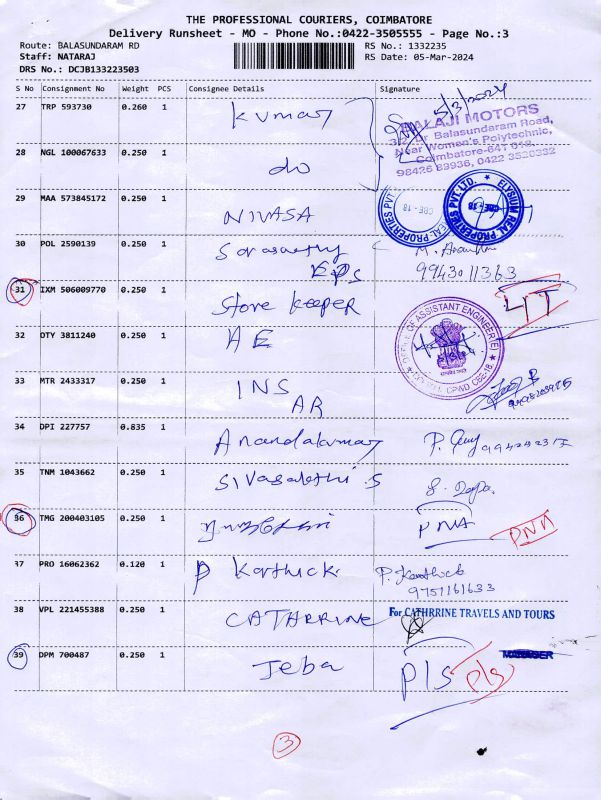 THE PROFESSIONAL COURIERS, COIMBATORE
Delivery Runsheet - MO - Phone No.:0422-3505555 - Page No.:3
Route: BALASUNDARAM RD
RS No.: 1332235
Staff: NATARAJ
RS Date: 05-Mar-2024
DRS No.: DCJB133223503
S No Consignment No Weight PCS Consignee Details Signature
27 TRP 593730 0.260 1 Kumar 5/3/2024
BALAJI MOTORS
Balasundaram Road,
Near Women's Polytechnic,
Coimbatore-641 018.
28 NGL 100067633 0.250 1 do
29 MAA 573845172 0.250 1 NIVASA
ELYSIUM REAL PROPERTIES PVT. LTD. CBE - 18
30 POL 2590139 0.250 1 Saraswathy
EPS
9943011363
31 IXM 506009770 0.250 1 Store keeper
OFFICE OF ASSISTANT ENGINEER(E)
CPWD CBE-18
32 DTY 3811240 0.250 1 AE
33 MTR 2433317 0.250 1 INS
AR
34 DPI 227757 0.835 1 Anandakumar
35 TNM 1043662 0.250 1
36 TMG 200403105 0.250 1 PNA PNA
37 PRO 16062362 0.120 1 P Karthick P. Karthick
9751161633
38 VPL 221455388 0.250 1 CATHRRINE For CATHRRINE TRAVELS AND TOURS
39 DPM 700487 0.250 1 Jeba P/S P/S
MANAGER
3